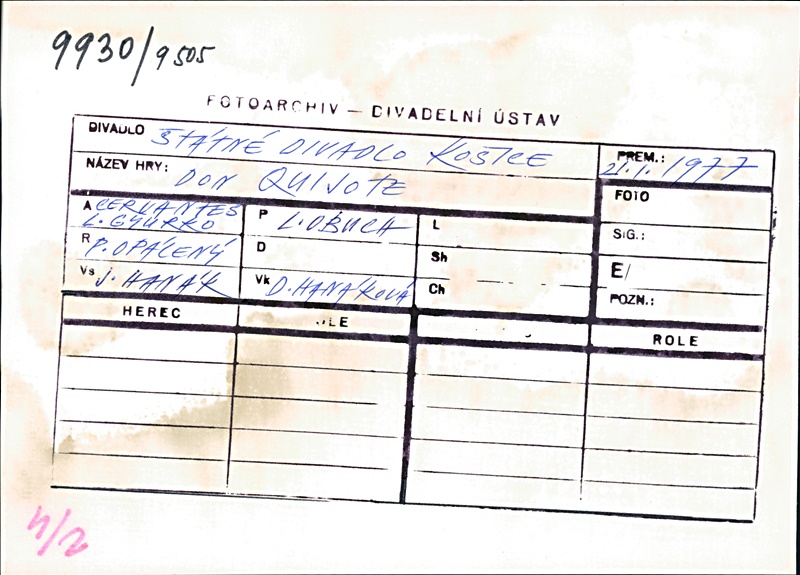 9930/9505
FOTOARCHIV – DIVADELNÍ ÚSTAV
DIVADLO ŠTÁTNÉ DIVADLO KOŠICE
PREM.: 21.1.1977
NÁZEV HRY: DON QUIJOTE
FOTO
A CERVANTES
L. GYURKO
P L. OBUCH
L
SIG.:
R P. OPÁLENÝ
D
Sh
E/
Vs J. HANÁK
Vk D. HANÁKOVÁ
Ch
POZN.:
HEREC
ROLE
4/2